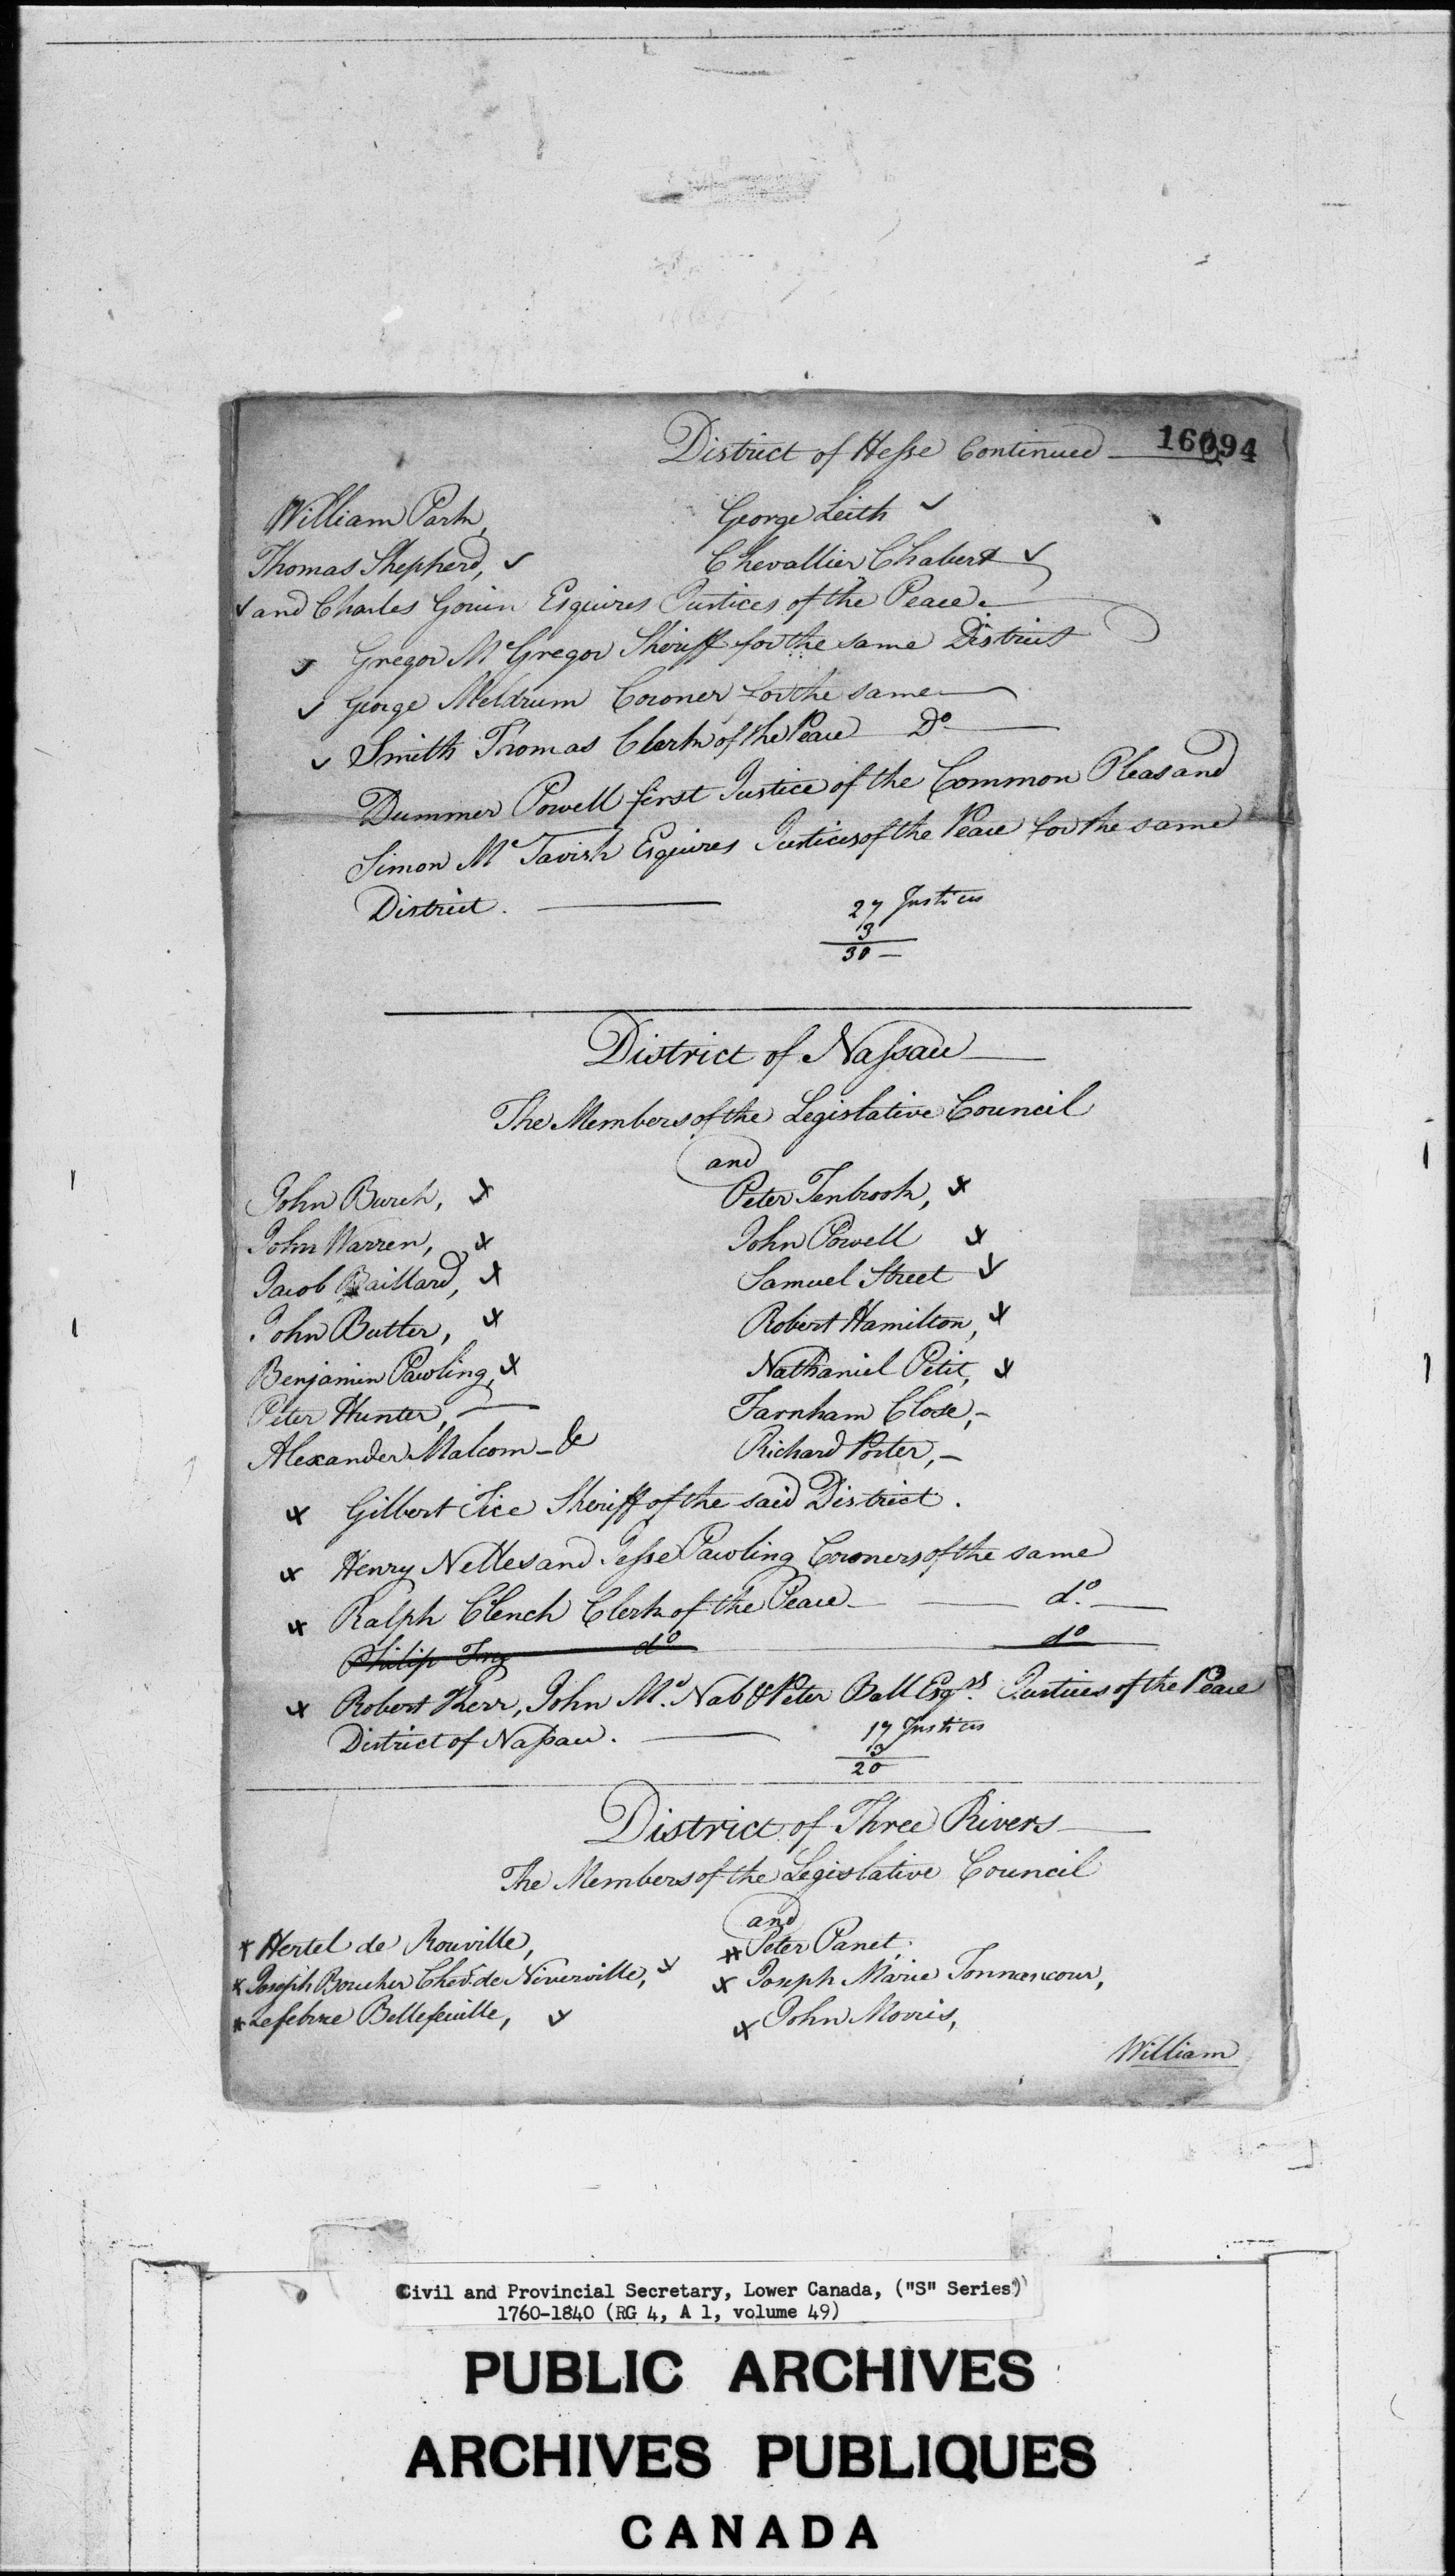 District of Hesse Continued 16094
William Park, George Leith ✓
Thomas Shepherd, ✓ Chevallier Chabert ✓
✓ and Charles Gouin Esquires Justices of the Peace.
✓ Gregor McGregor Sheriff for the same District
✓ George Meldrum Coroner for the same
✓ Smith Thomas Clerk of the Peace Do
Dummer Powell first Justice of the Common Pleas and
Simon McTavish Esquires Justices of the Peace for the same
District.
27 Justices
3
30
District of Nassau
The Members of the Legislative Council
and
John Burch, x Peter Tenbrook, x
John Warren, x John Powell x
Jacob Baillard, x Samuel Street x
John Butter, x Robert Hamilton, x
Benjamin Pawling, x Nathaniel Petit, x
Peter Hunter, — Farnham Close, -
Alexander Malcom - & Richard Porter, -
x Gilbert Tice Sheriff of the said District.
x Henry Nelles and Jesse Pawling Coroners of the same
x Ralph Clench Clerk of the Peace do
Philip do do
x Robert Kerr, John Mc Nab & Peter Ball Esqrs. Justices of the Peace
District of Nassau.
17 Justices
3
20
District of Three Rivers
The Members of the Legislative Council
and
x Hertel de Rouville, x Peter Panet,
x Joseph Boucher Chevr. de Niverville, x x Joseph Marie Tonnancour,
x Lefebvre Bellefeuille, x x John Morris,
William
Civil and Provincial Secretary, Lower Canada, ("S" Series)
1760-1840 (RG 4, A 1, volume 49)
PUBLIC ARCHIVES
ARCHIVES PUBLIQUES
CANADA